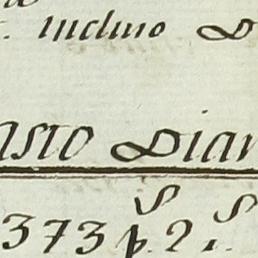 . Incluso D
asto Diar
373 p.s 2 r.s